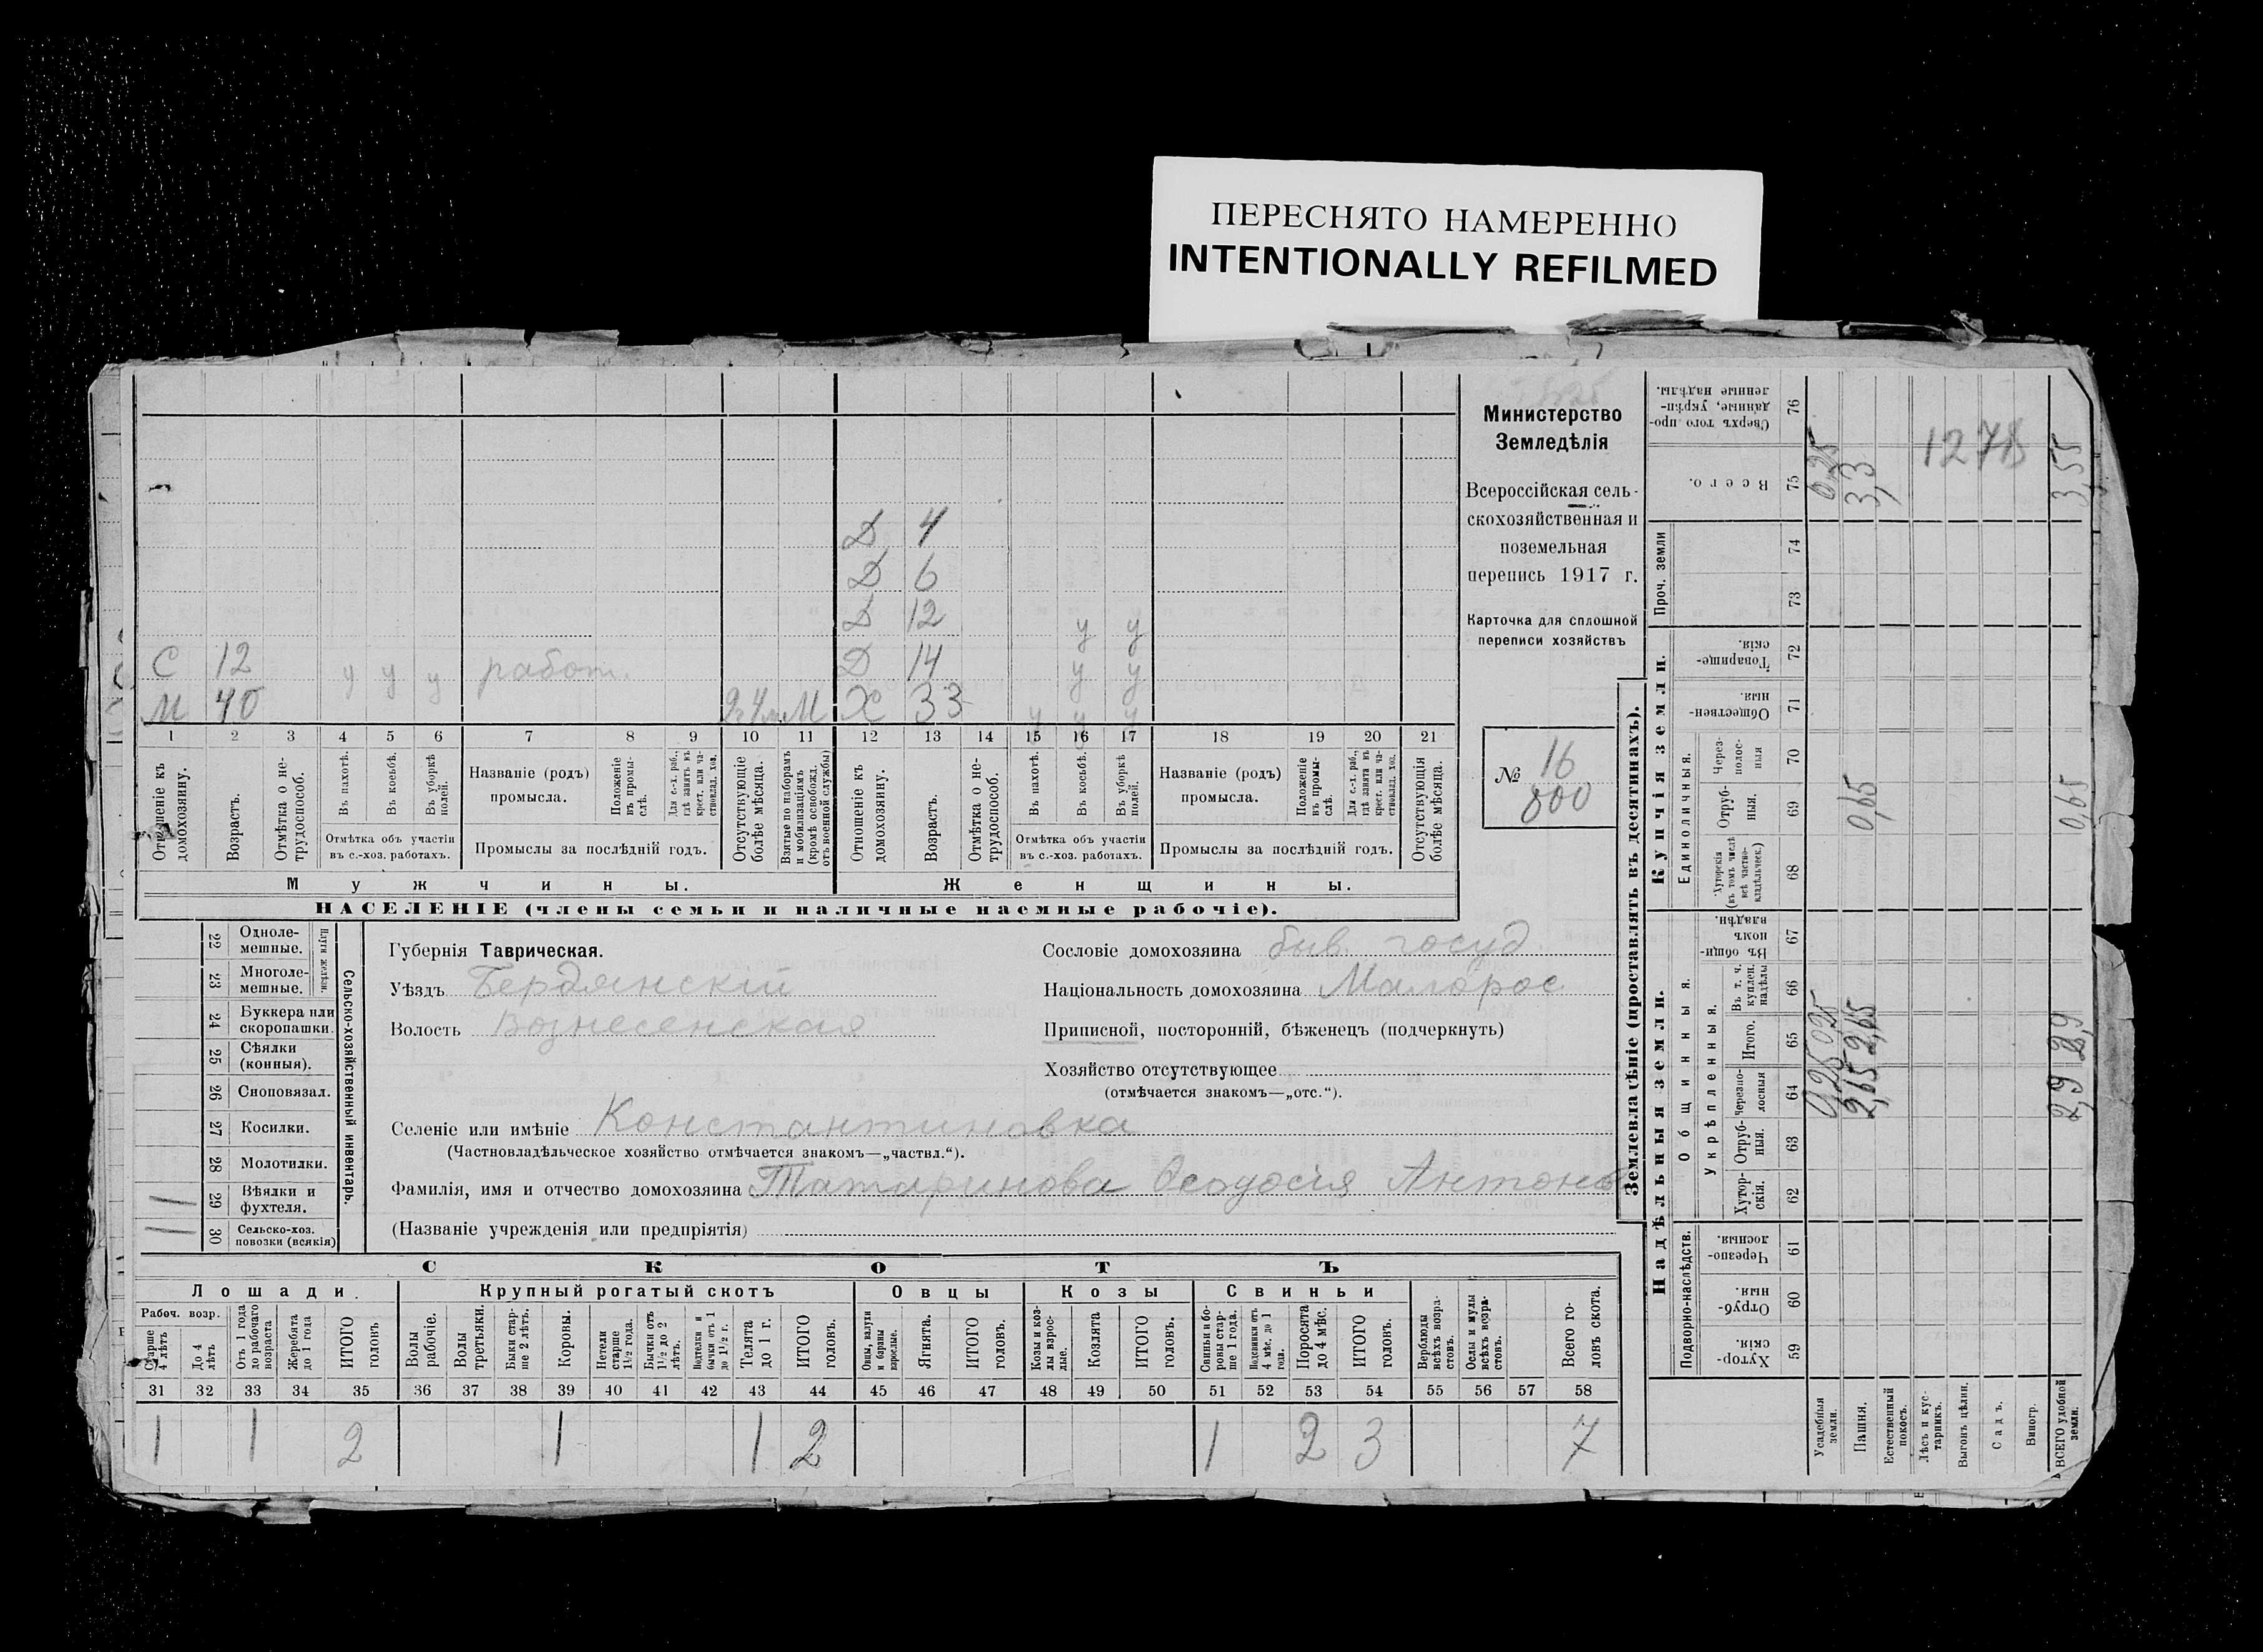 ПЕРЕСНЯТО НАМЕРЕННО
INTENTIONALLY REFILMED
Министерство
Земледѣлія
Всероссійская сель-
скохозяйственная и
поземельная
перепись 1917 г.
Карточка для сплошной
переписи хозяйствъ
№ 16
800
Д 4
Д 6
Д 12 у у
С 12 у у у работ. Д 14 у у
М 40 М Х 33 у у у
1 2 3 4 5 6 7 8 9 10 11 12 13 14 15 16 17 18 19 20 21
Отношеніе къ домохозяину.
Возрастъ.
Отмѣтка о не-трудоспособ.
Въ пахотѣ.
Въ косьбѣ.
Въ уборкѣ полей.
Отмѣтка объ участіи
въ с.-хоз. работахъ.
Названіе (родъ)
промысла.
Положеніе въ промы-слѣ.
Для с.-х. раб., гдѣ занятъ въ крест. или ча-стновлад. хоз.
Промыслы за послѣдній годъ.
Отсутствующіе болѣе мѣсяца.
Взятые по наборамъ и мобилизаціямъ (кромѣ освобожд. отъ военной службы)
Отношеніе къ домохозяину.
Возрастъ.
Отмѣтка о не-трудоспособ.
Въ пахотѣ.
Въ косьбѣ.
Въ уборкѣ полей.
Отмѣтка объ участіи
въ с.-хоз. работахъ.
Названіе (родъ)
промысла.
Положеніе въ промы-слѣ.
Для с.-х. раб., гдѣ занята въ крест. или ча-стновлад. хоз.
Промыслы за послѣдній годъ.
Отсутствующія болѣе мѣсяца.
Мужчины. Женщины.
НАСЕЛЕНІЕ (члены семьи и наличные наемные рабочіе).
Сельско-хозяйственный инвентарь.
Плуги желѣзн.
22 Одноле-мешные.
23 Многоле-мешные.
24 Буккера или скоропашки.
25 Сѣялки (конныя).
26 Сноповязал.
27 Косилки.
28 Молотилки.
1 29 Вѣялки и фухтеля.
1 30 Сельско-хоз. повозки (всякія)
Губернія Таврическая.
Уѣздъ Бердянскій
Волость Вознесенская
Сословіе домохозяина быв. госуд.
Національность домохозяина Малорос
Приписной, посторонній, бѣженецъ (подчеркнуть)
Хозяйство отсутствующее
(отмѣчается знакомъ—„отс.“).
Селеніе или имѣніе Константиновка
(Частновладѣльческое хозяйство отмѣчается знакомъ—„частвл.“).
Фамилія, имя и отчество домохозяина Татаринова Ѳеодосія Антонов
(Названіе учрежденія или предпріятія)
СКОТЪ
Лошади. Крупный рогатый скотъ Овцы Козы Свиньи
Рабоч. возр.
Старше 4 лѣтъ
До 4 лѣтъ
Отъ 1 года до рабочаго возраста
Жеребята до 1 года
ИТОГО головъ
Волы рабочіе.
Волы третьяки.
Быки стар-ше 2 лѣтъ.
Коровы.
Нетели старше 1½ года.
Бычки отъ 1½ до 2 лѣтъ.
Нетелки и бычки отъ 1 до 1½ г.
Телята до 1 г.
ИТОГО головъ.
Овцы, валухи и бараны взрослые.
Ягнята.
ИТОГО головъ.
Козы и коз-лы взрос-лые.
Козлята
ИТОГО головъ.
Свиньи и бо-ровы стар-ше 1 года.
Подсвинки отъ 4 мѣс. до 1 года.
Поросята до 4 мѣс.
ИТОГО головъ.
Верблюды всѣхъ возра-стовъ.
Ослы и мулы всѣхъ возра-стовъ.
Всего го-ловъ скота.
31 32 33 34 35 36 37 38 39 40 41 42 43 44 45 46 47 48 49 50 51 52 53 54 55 56 57 58
1 1 2 1 1 2 1 2 3 7
Землевладѣніе (проставлять въ десятинахъ).
Надѣльныя земли. Купчія земли.
Подворно-наслѣдств.
Общинныя.
Укрѣпленныя.
Единоличныя.
Проч. земли
59 Хутор-скія.
60 Отруб-ныя.
61 Черезпо-лосныя.
62 Хутор-скія.
63 Отруб-ныя.
64 Черезпо-лосныя
65 Итого.
66 Въ т. ч. куплен. надѣлы
67 Въ общи-номъ владѣн.
68 Хуторскія (въ томъ числѣ всѣ частно-владѣльческ.)
69 Отруб-ныя.
70 Через-полос-ныя
71 Обществен-ныя.
72 Товарище-скія.
73
74
75 Всего.
76 Сверхъ того про-данные, укрѣп-ленные надѣлы.
Усадебныя земли. 0,25 0,25 0,25
Пашня. 2,65 2,65 0,65 3,3
Естественный покосъ.
Лѣсъ и кус-тарникъ.
Выгонъ цѣлин.
Садъ.
Виногр.
ВСЕГО удобной земли. 2,9 2,9 0,65 3,55
1278